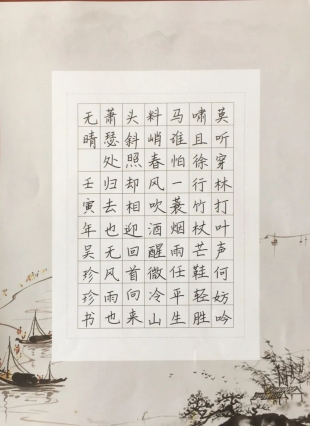 莫听穿林打叶声何妨吟
啸且徐行竹杖芒鞋轻胜
马谁怕一蓑烟雨任平生
料峭春风吹酒醒微冷山
头斜照却相迎回首向来
萧瑟处归去也无风雨也
无晴 壬寅年吴珍珍书